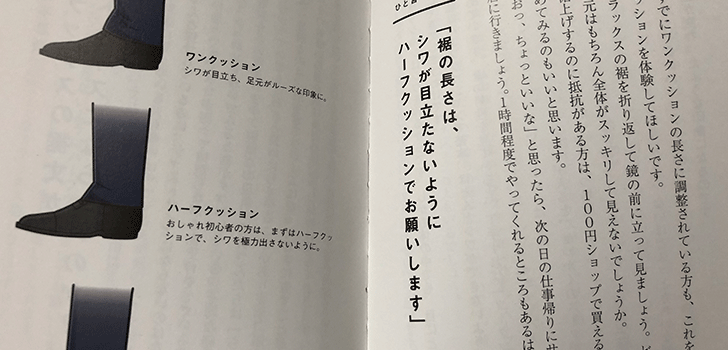 ワンクッション
シワが目立ち、足元がルーズな印象に。
ハーフクッション
おしゃれ初心者の方は、まずはハーフクッ
ションで、シワを極力出さないように。
すでにワンクッションの長さに調整されている方も、これを
ションを体験してほしいです。
ラックスの裾を折り返して鏡の前に立って見ましょう。
元はもちろん全体がスッキリして見えないでしょうか。
上げするのに抵抗がある方は、100円ショップで買える
めてみるのもいいと思います。
おっ、ちょっといいな」と思ったら、次の日の仕事帰りに
に行きましょう。1時間程度でやってくれるところもあるは
ひと
「裾の長さは、
シワが目立たないように
ハーフクッションでお願いします」